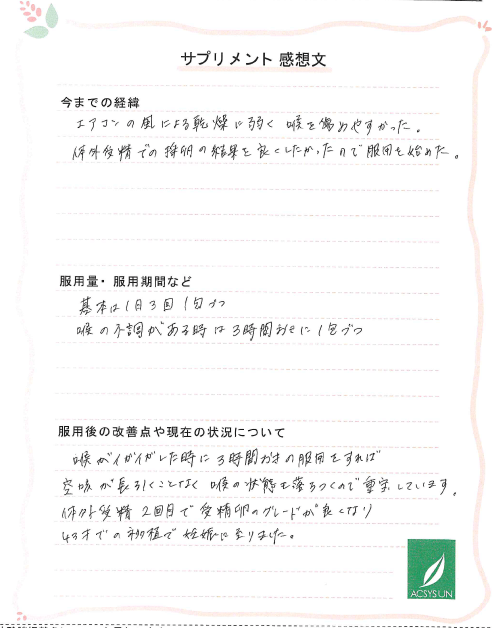 サプリメント 感想文
今までの経緯
エアコンの風による乾燥に弱く 喉を傷めやすかった。
体外受精での採卵の結果を良くしたかったので服用を始めた。
服用量・服用期間など
基本は1日3回 1包づつ
喉の不調がある時は3時間おきに1包づつ
服用後の改善点や現在の状況について
喉がイガイガした時に3時間おきの服用をすれば
空咳が長引くことなく 喉の状態も落ちつくので重宝しています。
体外受精 2回目で受精卵のグレードが良くなり
43才での初移植で妊娠に至りました。
ACSYSUN